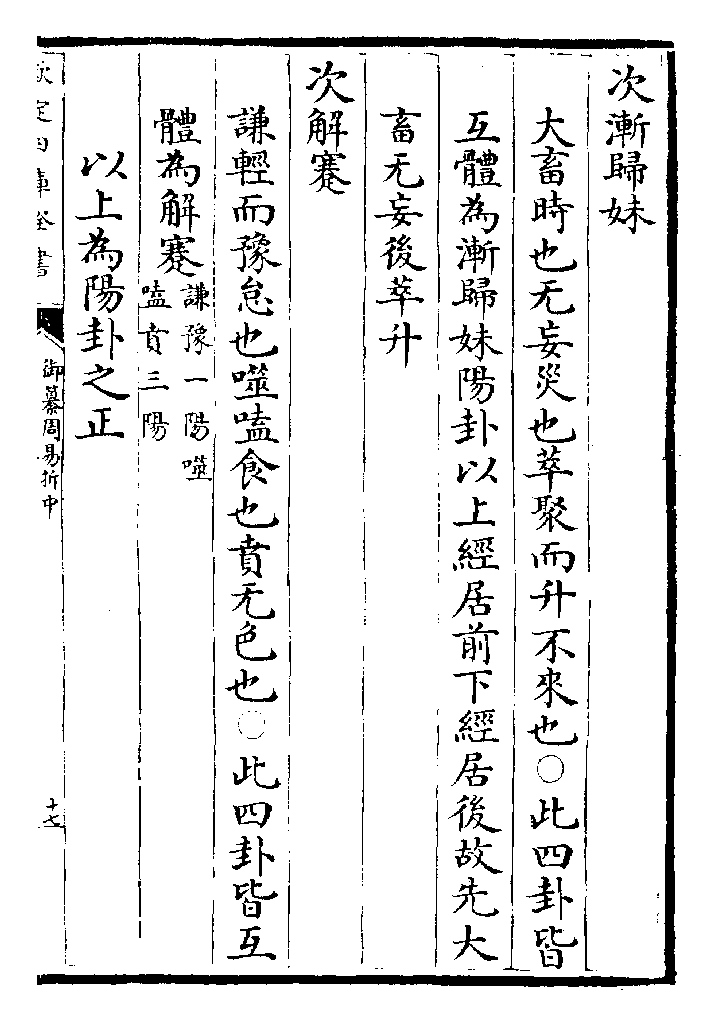 次漸歸妹
大畜時也无妄災也萃聚而升不來也○此四卦皆
互體為漸歸妹陽卦以上經居前下經居後故先大
畜无妄後萃升
次解蹇
謙輕而豫怠也噬嗑食也賁无色也○此四卦皆互
體為解蹇謙豫一陽噬
嗑賁三陽
以上為陽卦之正
欽定四庫全書
御纂周易折中
十七